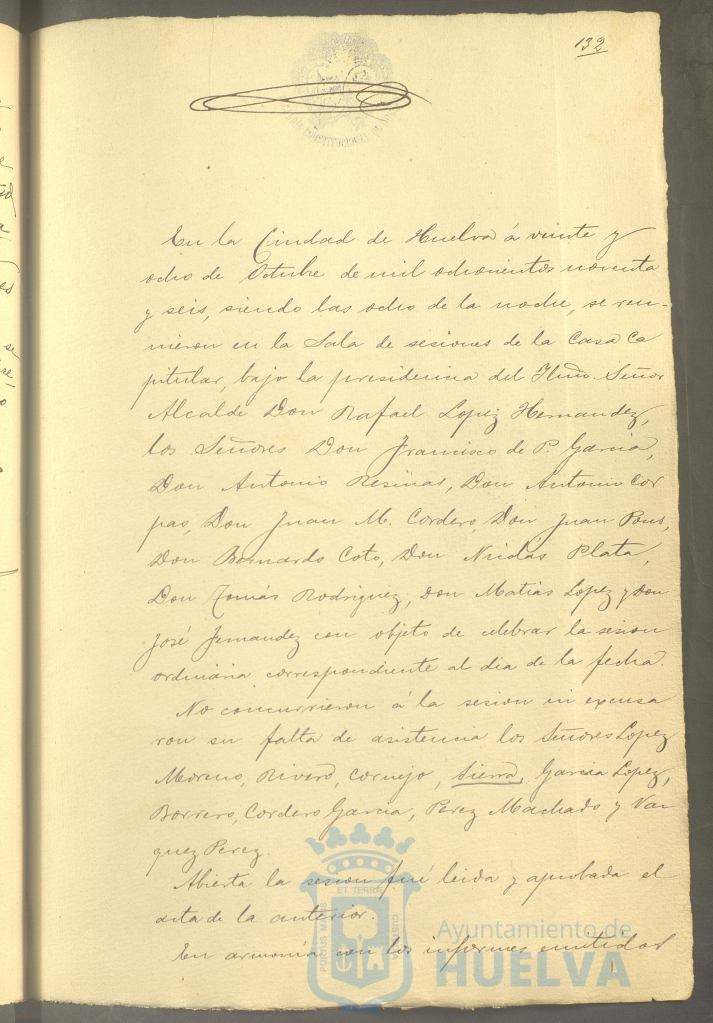 132
En la Ciudad de Huelva á veinte y
ocho de Octubre de mil ochocientos noventa
y seis, siendo las ocho de la noche, se reu-
nieron en la Sala de sesiones de la Casa Ca
pitular, bajo la presidencia del Iltmo. Señor
Alcalde Don Rafael Lopez Hernandez,
los Señores Don Francisco de P. Garcia,
Don Antonio Resinas, Don Antonio Cor
pas, Don Juan M. Cordero, Don Juan Pons,
Don Bernardo Coto, Don Nicolás Plata,
Don Tomás Rodriguez, Don Matias Lopez y Don
José Fernandez con objeto de celebrar la sesion
ordinaria correspondiente al dia de la fecha.
No concurrieron á la sesion ni excusa
ron su falta de asistencia los Señores Lopez
Moreno, Rivero, Cornejo, Sierra, Garcia Lopez,
Borrero, Cordero Garcia, Perez Machado y Vaz
quez Perez.
Abierta la sesion fué leida y aprobada el
acta de la anterior.
En armonía con los informes emitidos
PORTUS MARIS ET TERRE CUSTODIA
Ayuntamiento de
HUELVA